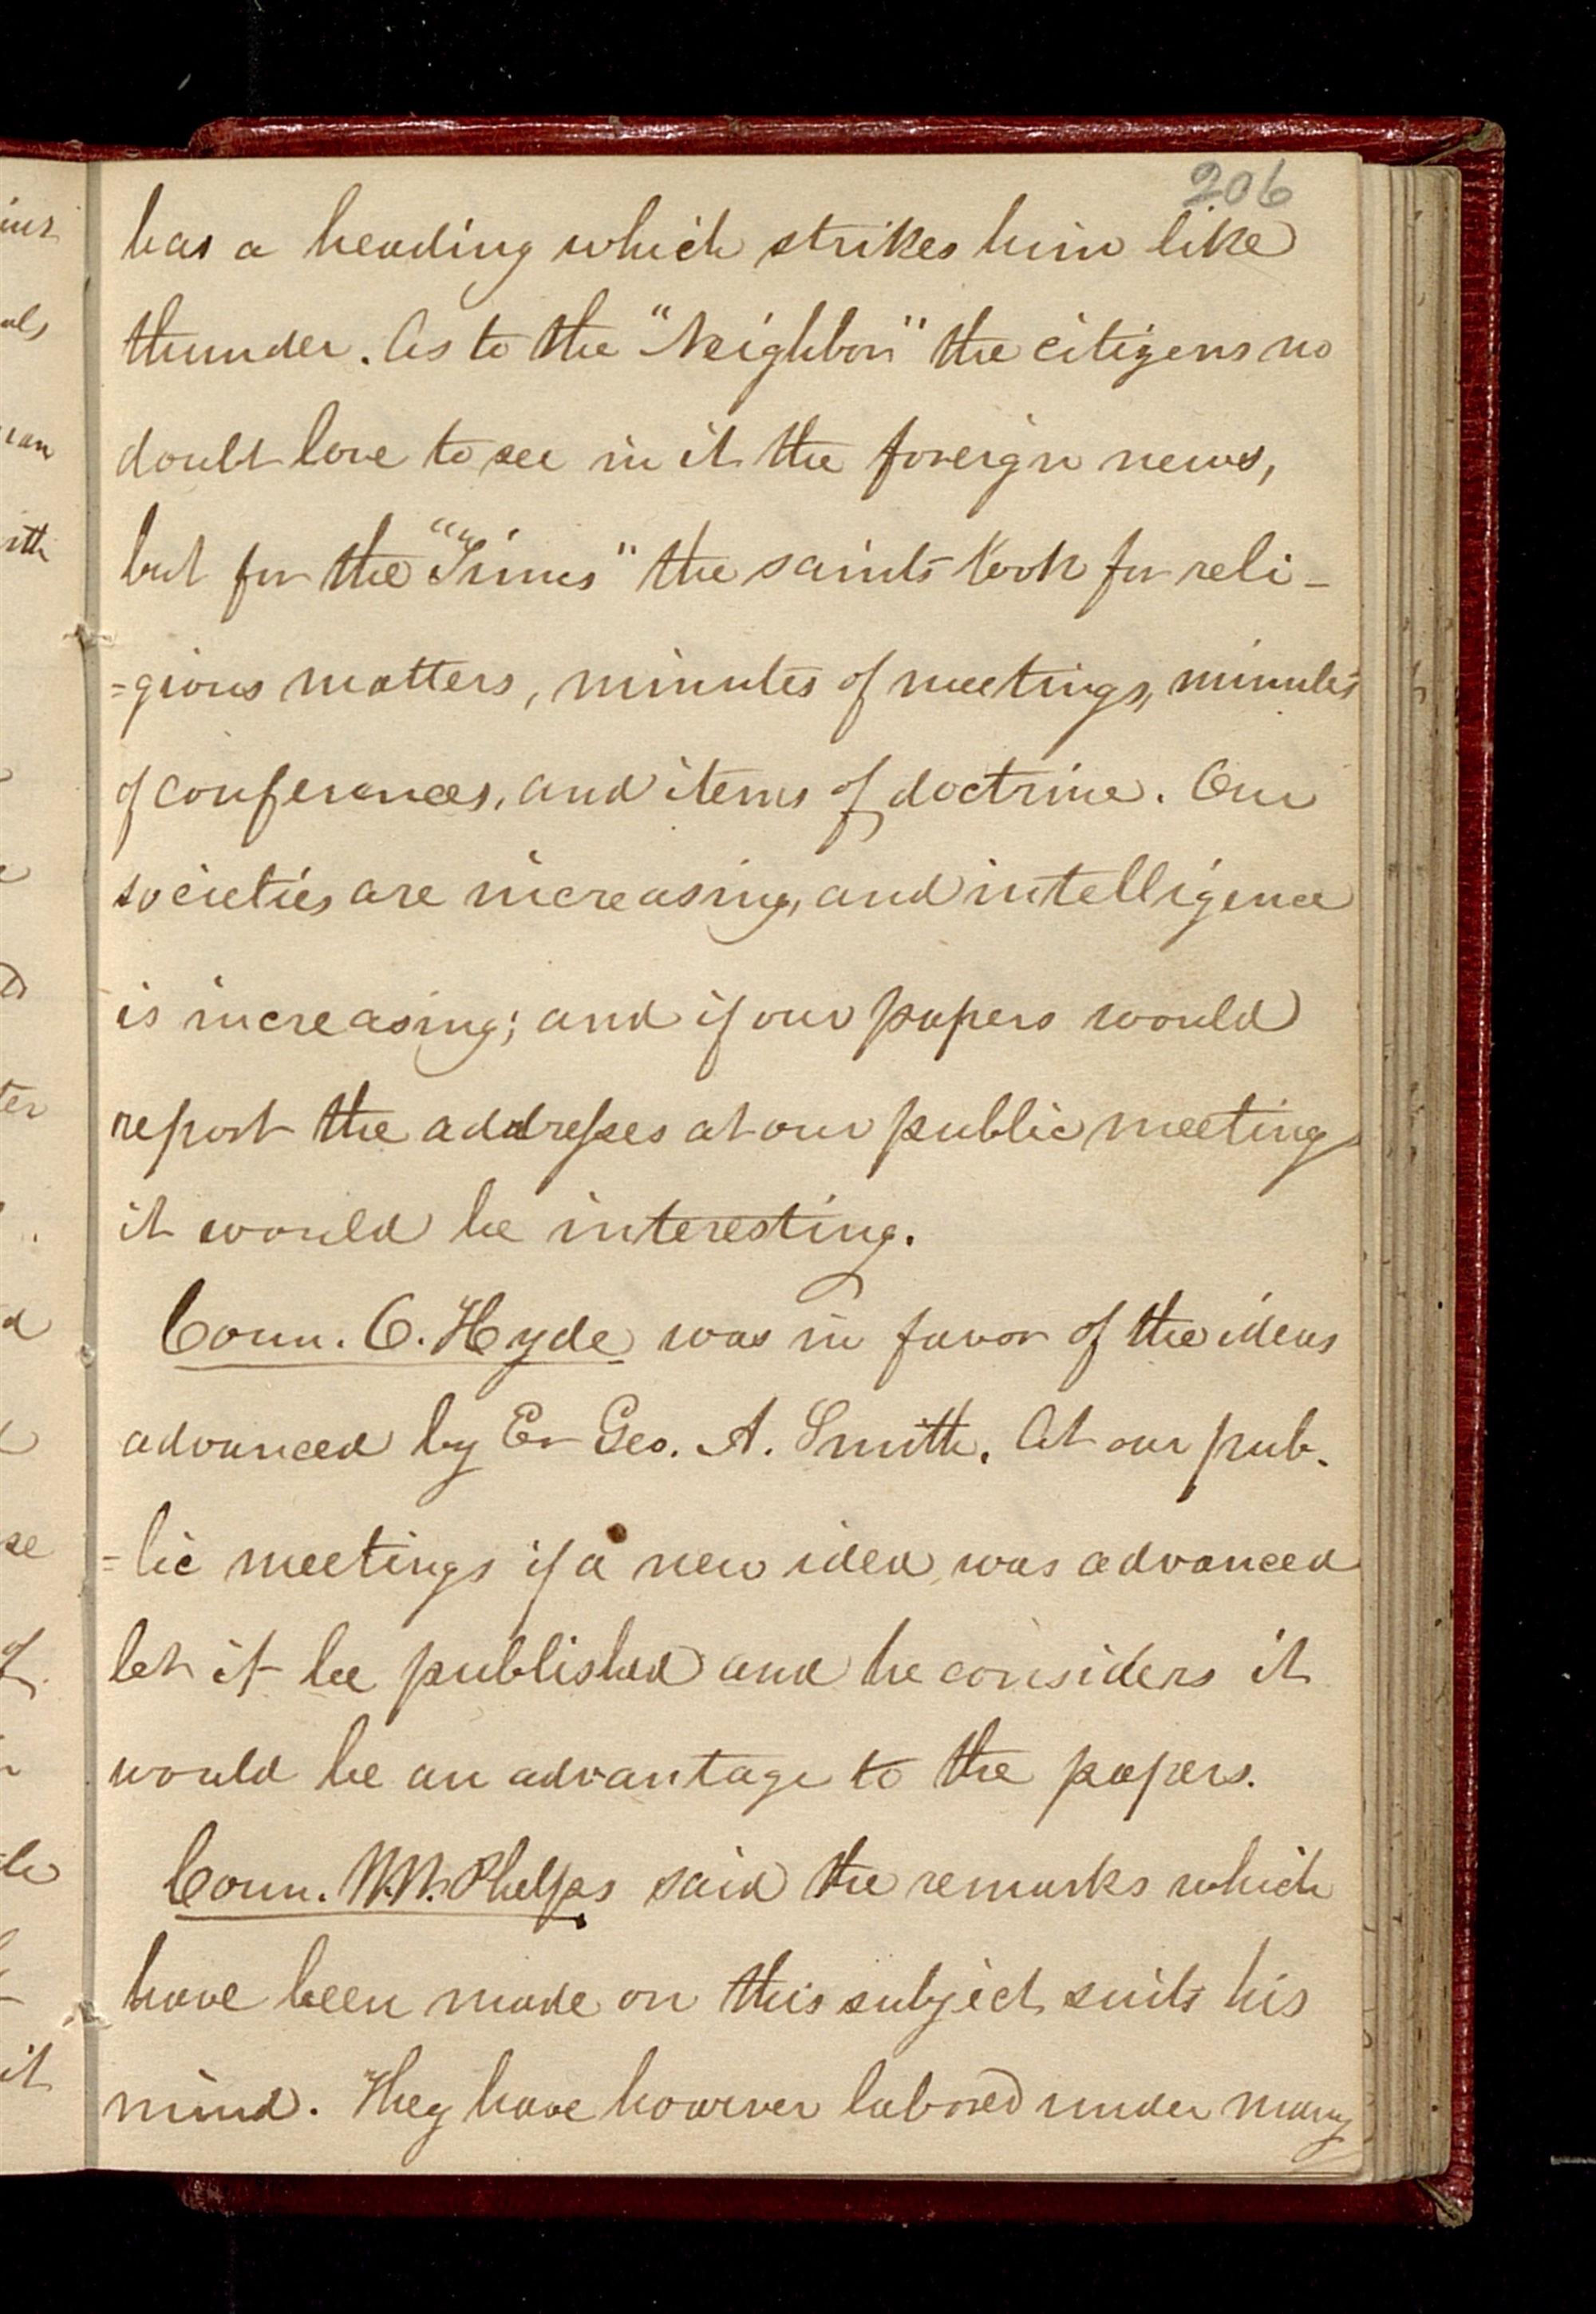 206
has a heading which strikes him like
thunder. As to the "Neighbor" the citizens no
doubt love to see in it the foreign news,
but for the "Times" the saints look for reli-
=gious matters, minutes of meetings, minutes
of conferences, and items of doctrine. Our
societies are increasing, and intelligence
is increasing; and if our papers would
report the addresses at our public meetings
it would be interesting.
Coun. O. Hyde was in favor of the ideas
advanced by Er Geo. A. Smith. At our pub-
=lic meetings if a new idea was advanced
let it be published and he considers it
would be an advantage to the papers.
Coun. W.W. Phelps said the remarks which
have been made on this subject suits his
mind. They have however labored under many